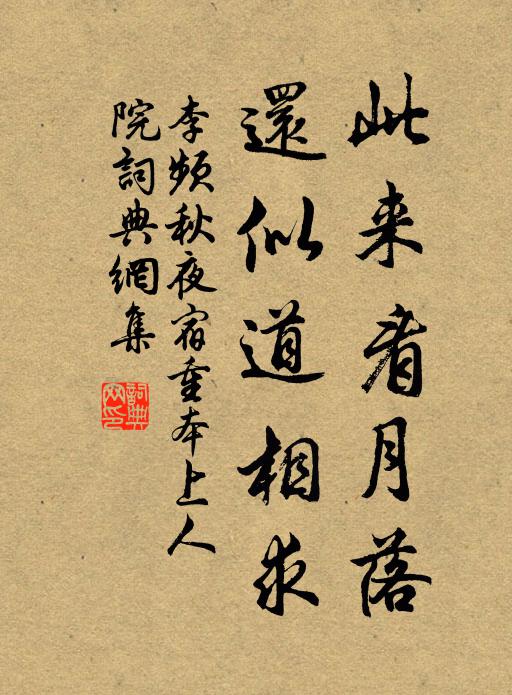 此来看月落
還似道相求
李頻秋夜宿重本上人
院詞典網集
詞典
网印